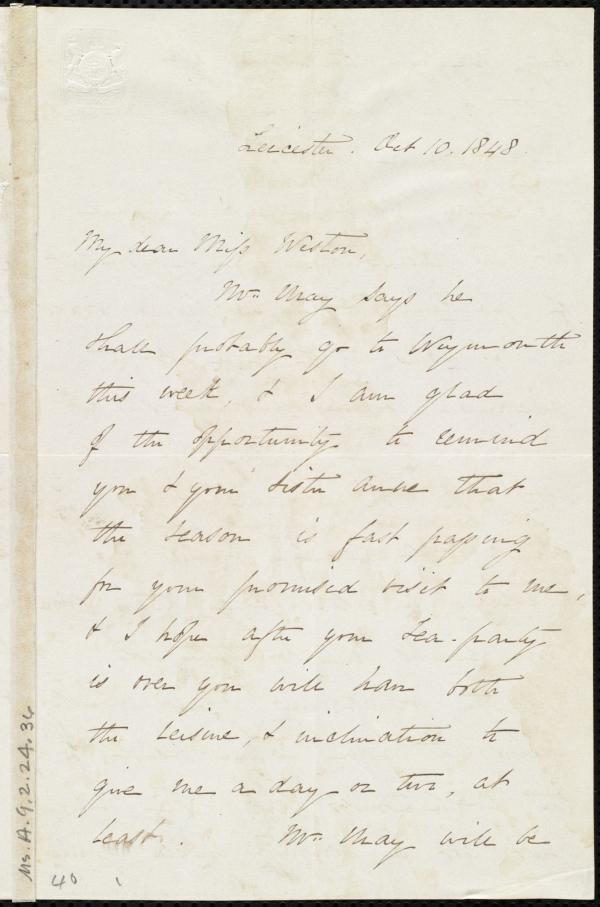 Leicester. Oct 10. 1848.
My dear Miss Weston,
Mr. May says he
shall probably go to Weymouth
this week, & I am glad
of the opportunity to remind
you & your sister Anne that
the season is fast passing
for your promised visit to me,
& I hope after your tea-party
is over you will have both
the leisure, & inclination to
give me a day or two, at
least. Mr. May will be
Ms. A. 9. 2. 24. 34
40